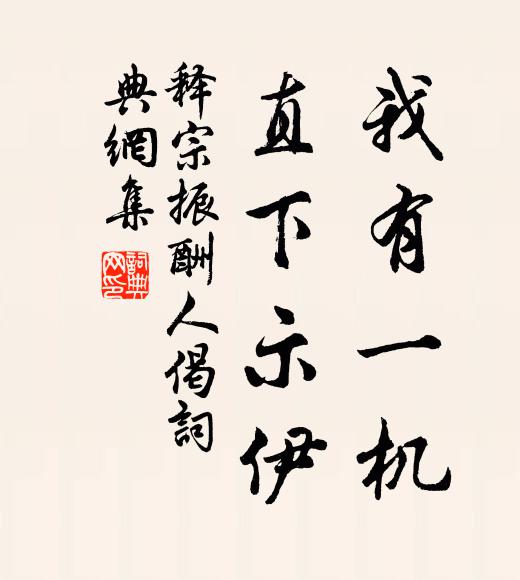 我有一机
直下示伊
释宗振酬人偈詞
典網集
詞典
网印